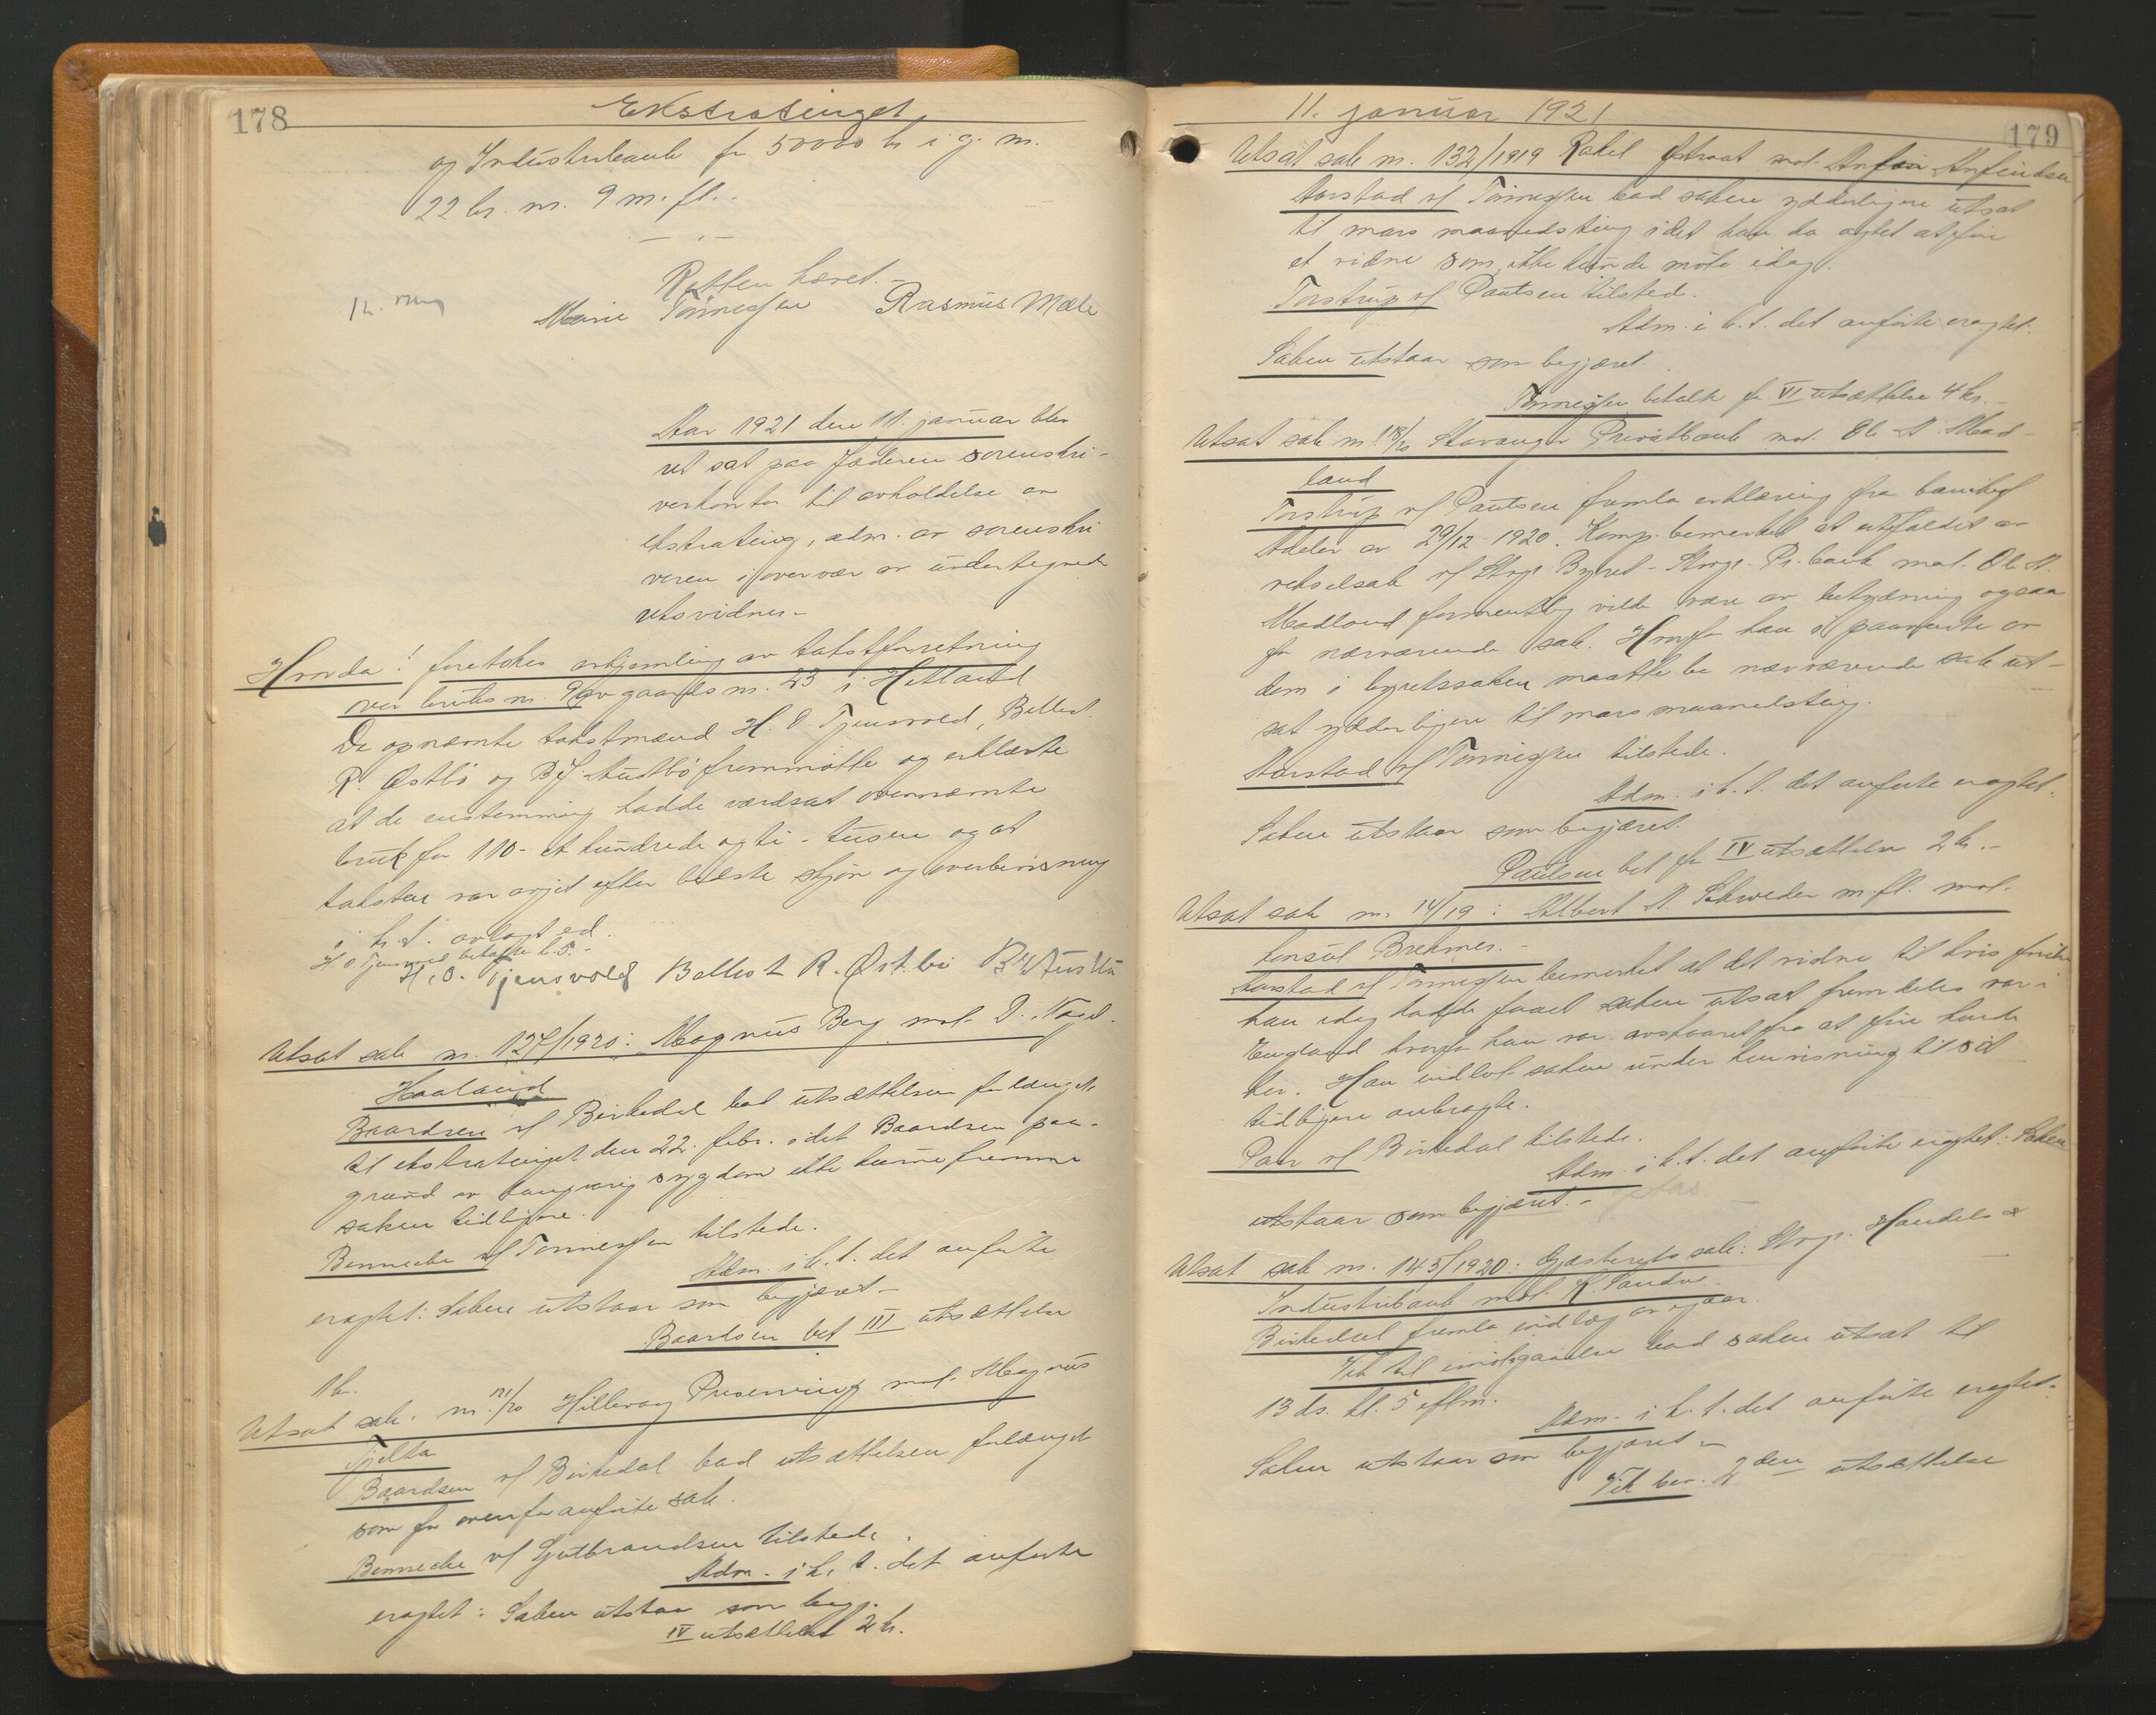 178
Ekstratinget
og Industribank for 50000 kr i g. nr.
22 br. nr. 9 m. fl. -
Retten hævet. -
Marie Tönnessen Rasmus Mæle
Aar 1921 den 11. januar blev
ret sat paa Jæderen sorenskri-
verkontor til avholdelse av
ekstrating, adm. av sorenskri
veren i overvær av undertegnede
retsvidner -
Hvorda! foretokes avhjemling av takstforretning
over bruks nr. 9 av gaards nr. 23 i Hetland
De opnævnte takstmænd H. O. Tjensvold, Ballest
R. Østbö og B. J. Austbö fremmötte og erklærte
at de enstemmig hadde værdsat ovennævnte
bruk for 110 - et hundrede og ti - tusen og at
taksten var avgit efter bedste skjön og overbevisning
i h. t. avlagt ed.
H. O. Tjensvold betalte kr. 5. -
H. O. Tjensvold Ballest R. Östbö B J Austbö
Utsat sak nr. 127/1920: Magnus Berg mot D. Nagel-
Haaland
Baardsen v/ Birkedal bad utsættelsen forlænget
til ekstratinget den 22. febr. idet Baardsen paa-
grund av langvarig sygdom ikke kunne fremme
saken tidligere.
Bennecke v/ Tönnessen tilstede.
Adm. i h. t. det anförte
eragtet: Saken utstaar som begjæret -
Baardsen bet III utsættelse
1 kr.
Utsat sak nr. 131/20 Hillevaag Preserving mot Magnus
Tjelta
Baardsen v/ Birkedal bad utsættelsen forlænget
som for ovenfor anförte sak.
Bennecke v/ Gutbrandsen tilstede.
Adm. i h. t. det anförte
eragtet: Saken utstaar som begj.
IV utsættelse 2 kr.
11. januar 1921
179
Utsat sak nr. 132/1919 Rakel mot Anfin Anfindsen
Aarstad v/ Tönnessen bad saken ydderligere utsat
til mars maanedsting idet han da agtet at före
et vidne som ikke kunde möte idag.
Torstrup v/ Paulsen tilstede.
Adm. i h. t. det anförte eragtet.
Saken utstaar som begjæret.
Tönnessen betalte for VI utsættelse 4 kr. -
Utsat sak nr. 118/20 Stavanger Privatbank mot Ole A. Mad-
land
Torstrup v/ Paulsen fremla erklæring fra bankchef
Adeler av 29/12 1920. Komp. bemerket at utfaldet av
vekselsak v/ Stvgr. Byret - Stvgr. Pr. bank mot Ole A.
Madland formentlig vilde være av betydning ogsaa
for nærværende sak. Hvorfor han i paavente av
dom i byretssaken maatte be nærværende sak ut-
sat ydderligere til mars maanedsting.
Aarstad v/ Tönnessen tilstede.
Adm. i h. t. det anförte eragtet:
Saken utstaar som begjæret.
Paulsen bet for IV utsættelse 2 kr. -
Utsat sak nr. 14/19: Albert A. Schweder m. fl. mot
konsul Brekmer. -
Aarstad v/ Tönnessen bemerket at det vidne til hvis förelse
han idag hadde faaet saken utsat fremdeles var i
England hvorfor han var avskaaret fra at före hende
her. Han indlot saken under henvisning til sit
tidligere anbragte.
Paar v/ Birkedal tilstede.
Adm. i h. t. det anförte eragtet: Saken
utstaar som begjæret. -
Utsat sak nr. 145/1920: Gjesteretssak: Stvgr. Handels &
Industribank mot K. Sandve.
Birkedal fremla indlæg av igaar.
Vik til imötegaaelse bad saken utsat til
13 ds. kl. 5 eftm.
Adm. i h. t. det anförte eragtet:
Saken utstaar som begjæret -
Vik ber. 2den utsættelse